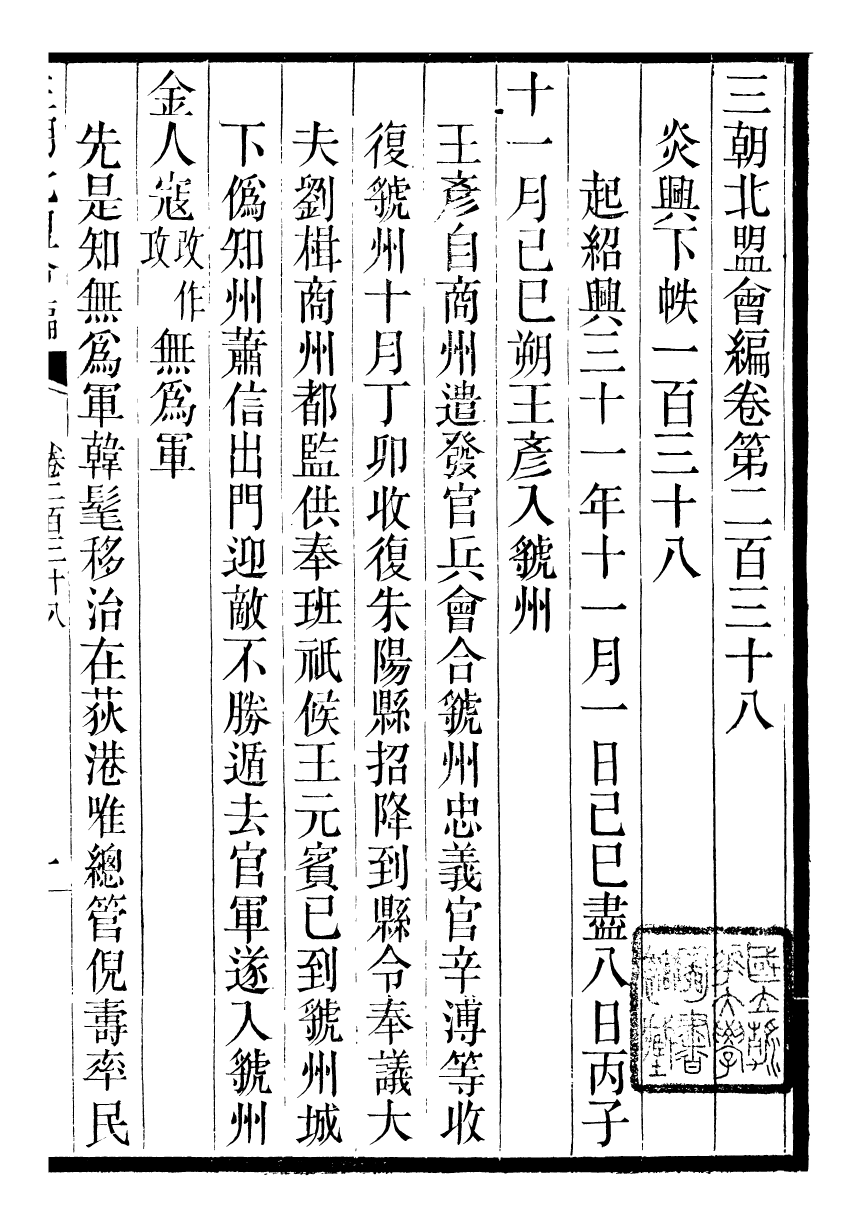 三朝北盟會編卷第二百三十八
炎興下帙一百三十八
起紹興三十一年十一月一日己巳盡八日丙子
十一月己巳朔王彥入虢州
王彥自商州遣發官兵會合虢州忠義官辛溥等收
復虢州十月丁卯收復朱陽縣招降到縣令奉議大
夫劉楫商州都監供奉班祗候王元賓已到虢州城
下僞知州蕭信出門迎敵不勝遁去官軍遂入虢州
金人寇改作攻無爲軍
先是知無爲軍韓髦移治在荻港唯總管倪壽率民
卷二百三十八
一